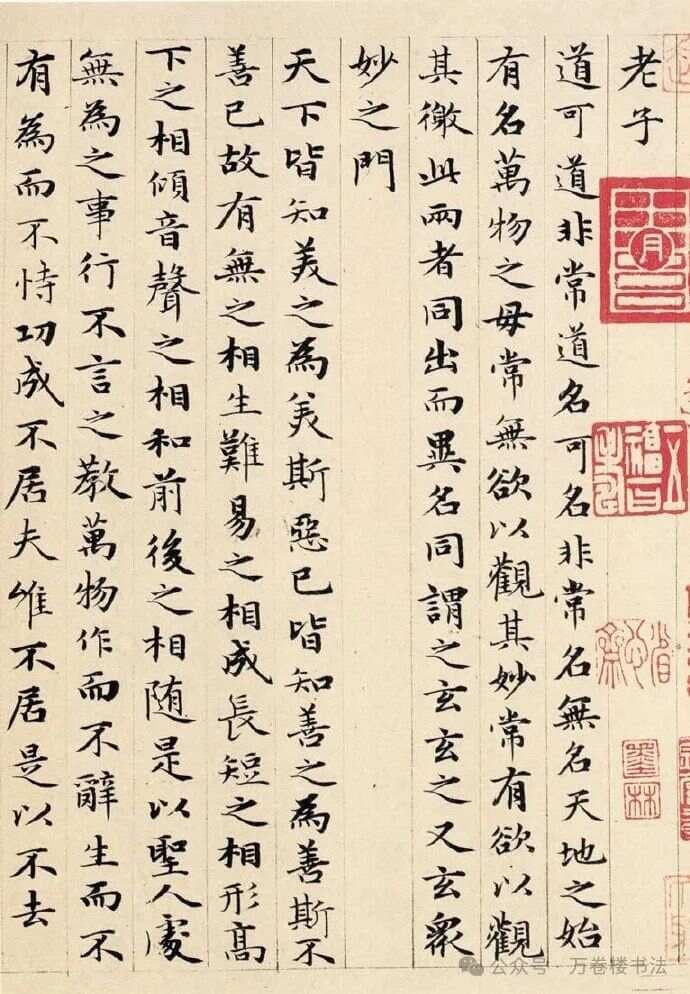 老子
道可道非常道名可名非常名無名天地之始
有名萬物之母常無欲以觀其妙常有欲以觀
其徼此兩者同出而異名同謂之玄玄之又玄衆
妙之門
天下皆知美之為美斯惡已皆知善之為善斯不
善已故有無之相生難易之相成長短之相形高
下之相傾音聲之相和前後之相随是以聖人處
無為之事行不言之教萬物作而不辭生而不
有為而不恃功成不居夫唯不居是以不去
墨林
公众号 · 万卷楼书法